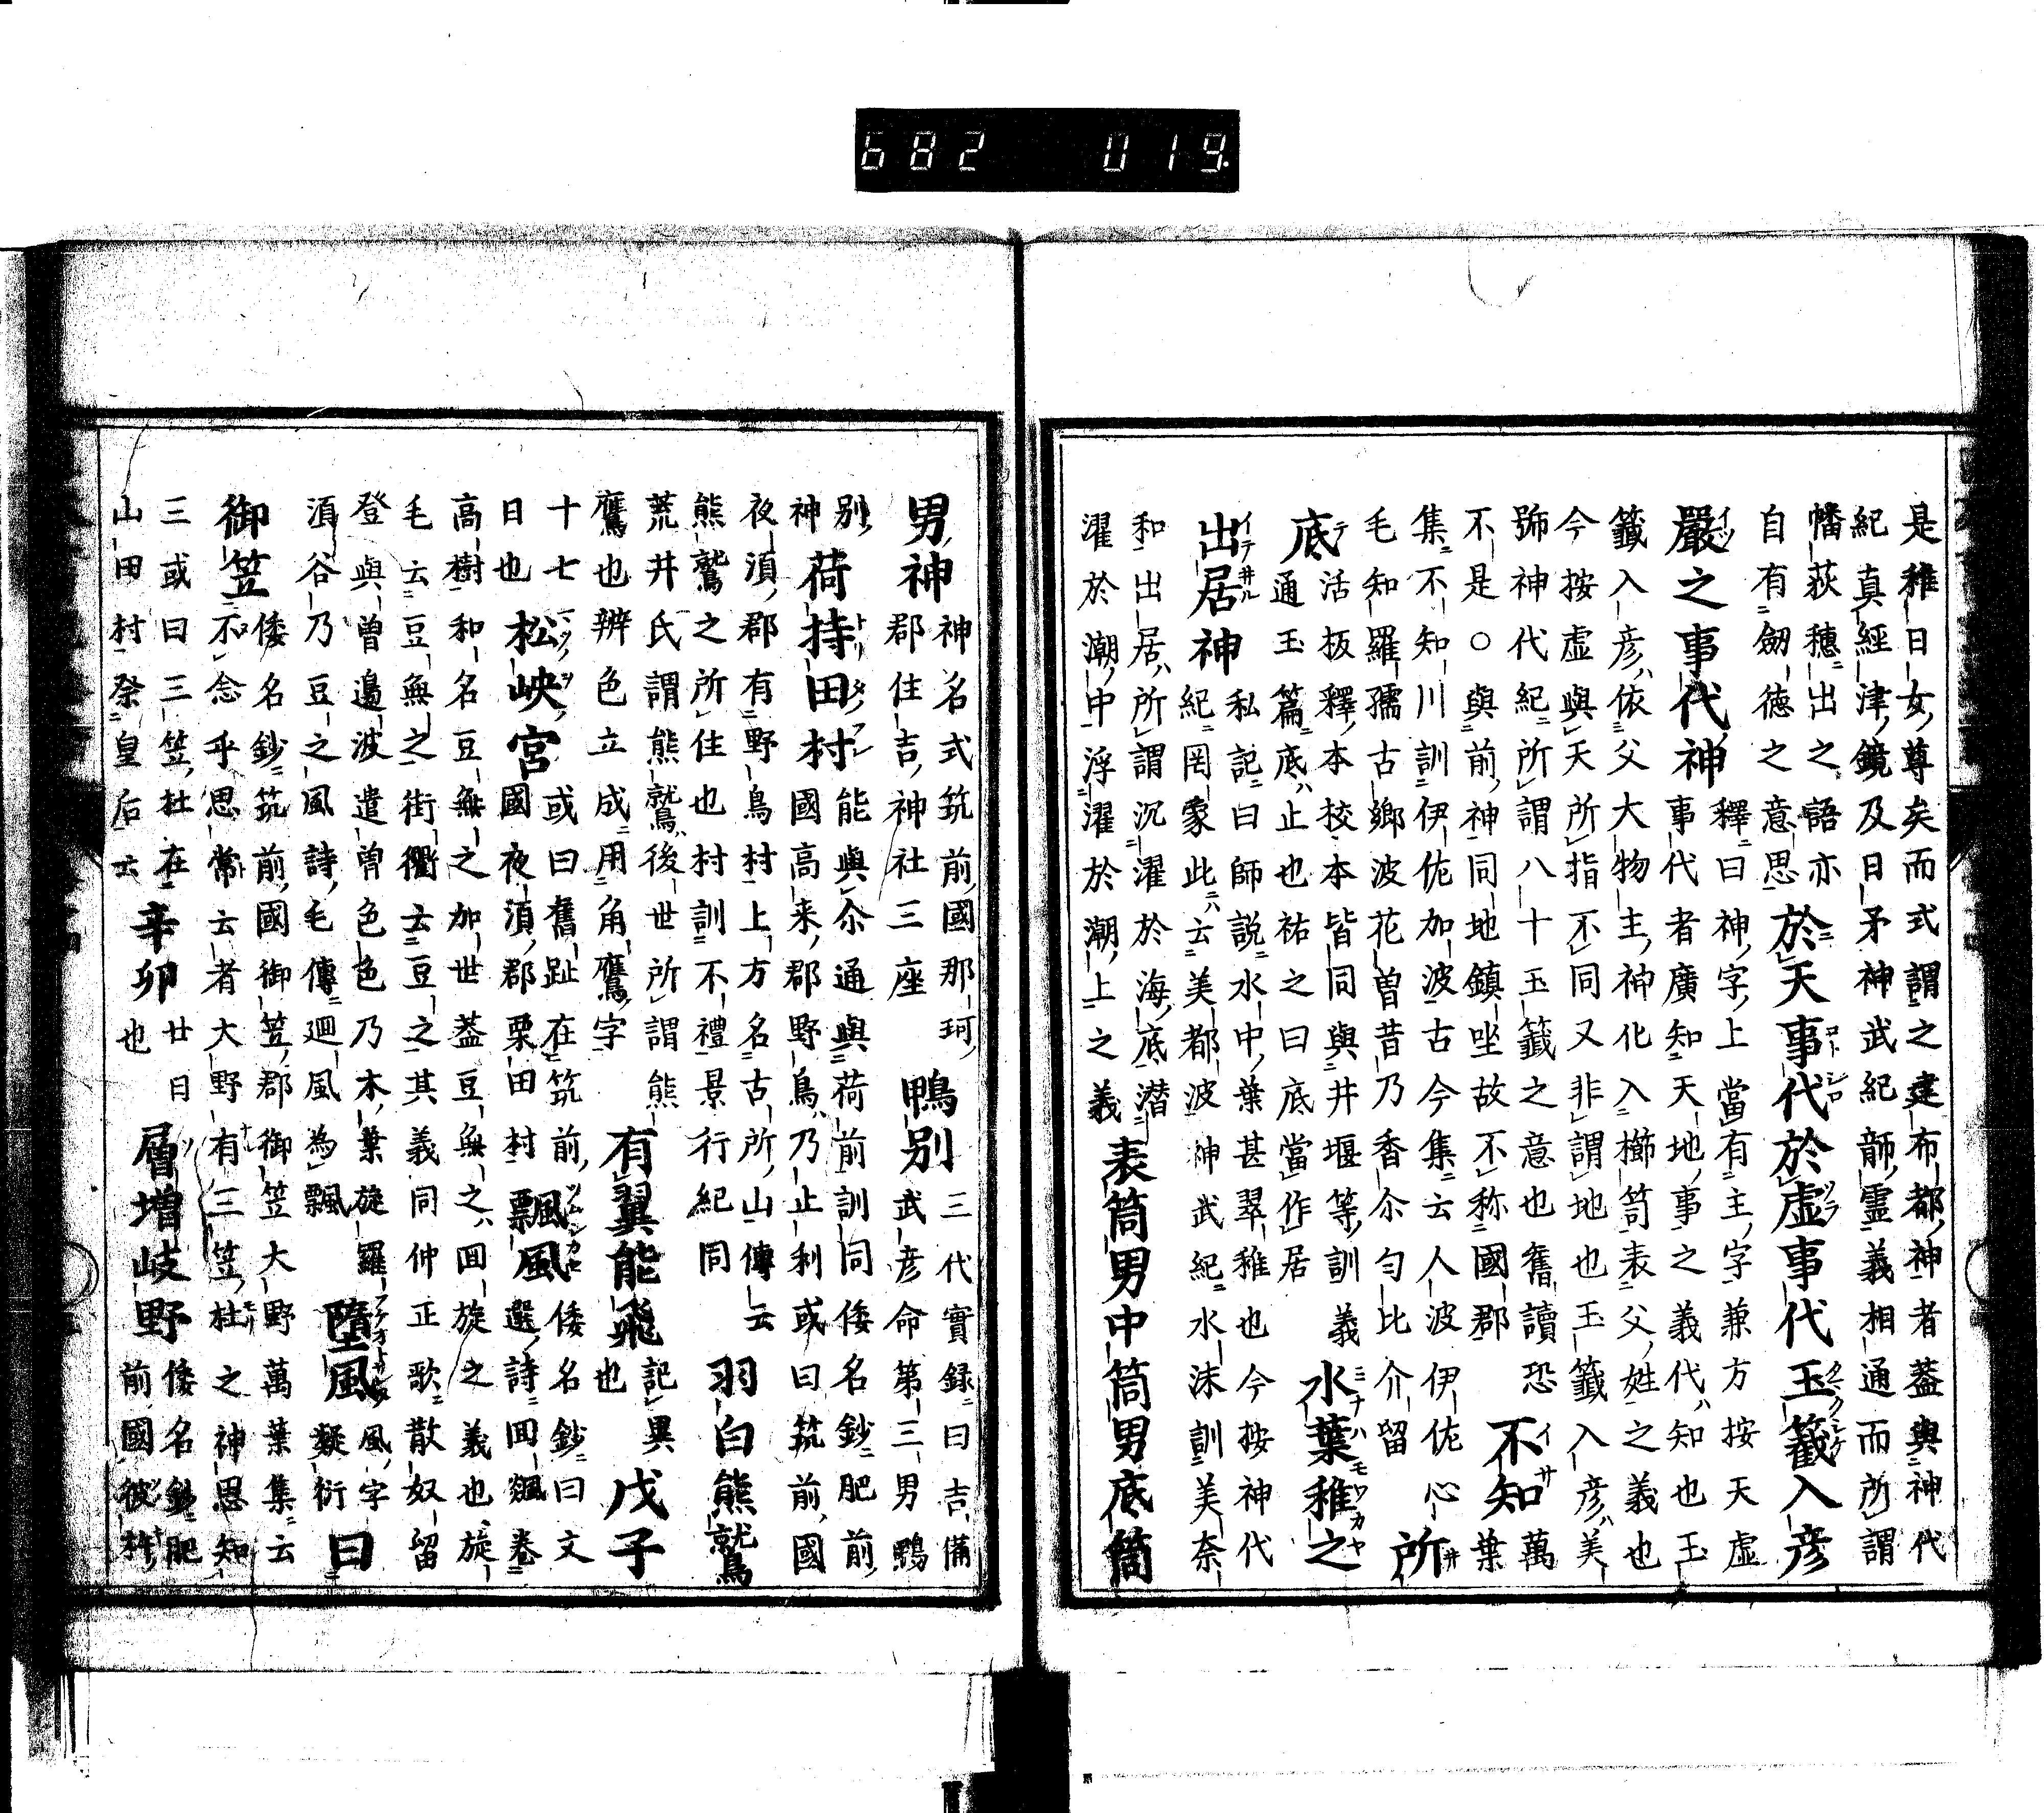 682 019.
是稚日女尊矣而式謂之建布都神者蓋與神代
紀真經津鏡及日矛神武紀韴靈義相通而所謂
幡荻穗出之語亦
自有劒德之意思
於天事代於虛事代玉籤入彥
嚴之事代神
釋曰神字上當有主字兼方按天虛
事代者廣知天地事之義代知也玉
籤入彥依父大物主神化入櫛笥表父姓之義也
今按虛與天所指不同又非謂地也玉籤入彥美
號神代紀所謂八十玉籤之意也舊讀恐
不是○與前神同地鎮坐故不称國郡
不知
萬葉
集不知川訓伊佐加波古今集云人波伊佐心
毛知羅孺古鄉波花曽昔乃香尒匀比介留
所
底
活板釋本校本皆同與井堰等訓義
通玉篇底止也祐之曰底當作居
水葉稚之
出居神
私記曰師說水中葉甚翠稚也今按神代
紀罔象此云美都波神武紀水沫訓美奈
和出居所謂沉濯於海底潜
濯於潮中浮濯於潮上之義
表筒男中筒男底筒
男神
神名式筑前國那珂
郡住吉神社三座
鴨別
三代實録曰吉備
武彥命第三男鴨
別
神
荷持田村
能與尒通與荷前訓同倭名鈔肥前
國高来郡野鳥乃止利或曰筑前國
夜須郡有野鳥村上方名古所山傳云
熊鷲之所住也村訓不禮景行紀同
羽白熊鷲
荒井氏謂熊鷲後世所謂熊
鷹也辨色立成用角鷹字
有翼能飛
記異
也
戊子
十七
日也
松峽宮
或曰舊趾在筑前
國夜須郡栗田村
飄風
倭名鈔曰文
選詩回飆卷
高樹和名豆無之加世蓋豆無之回旋之義也旋
毛云豆無之街衢云豆之其義同仲正歌散奴留
登與曽邊波遣曽色色乃木葉旋羅
須谷乃豆之風詩毛傳廻風為飄
墮風
風字
疑衍
曰
御笠
倭名鈔筑前國御笠郡御笠大野萬葉集云
不念乎思常云者大野有三笠杜之神思知
三或曰三笠杜在
山田村祭皇后云
辛卯
廿日
也
層増岐野
倭名鈔肥
前國彼杵